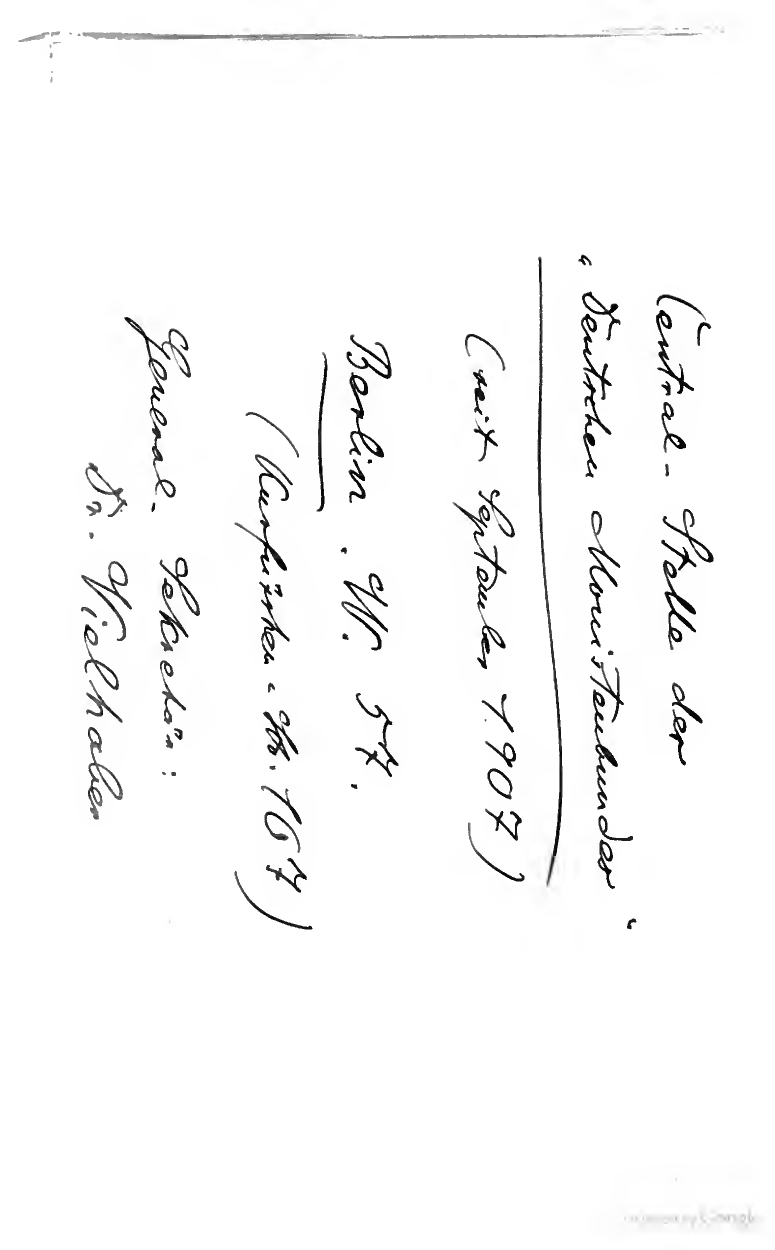 Central-Stelle der
„Deutschen Monistenbundes“
(seit September 1.907)
Berlin. W. 57.
(Kurfürsten-Str. 167)
General-Sekretär:
Dr. Vielhaber